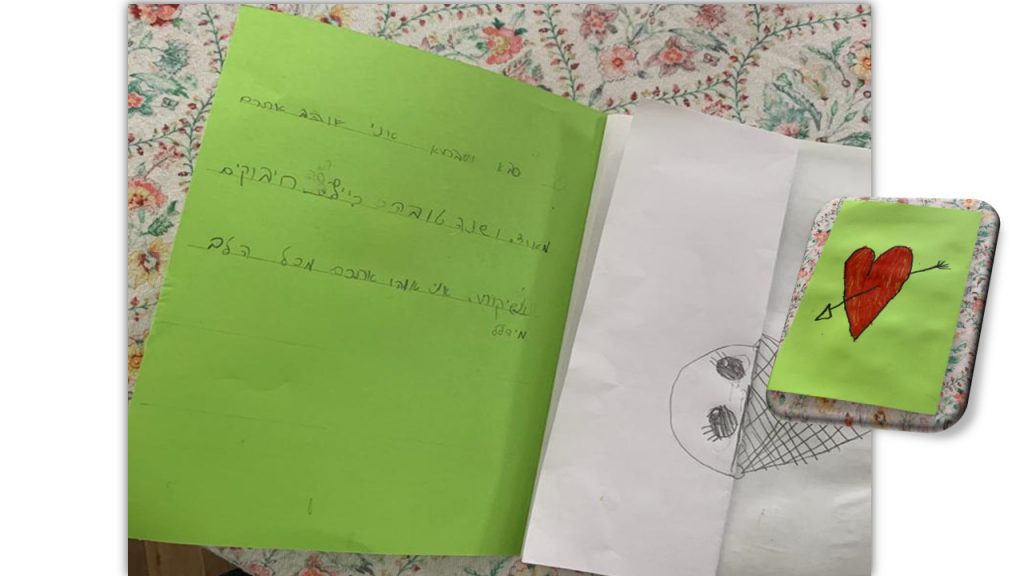 סבא וסבתא אני אוהב אתכם
מאוד. ושנה טובה כייש לכם חיבוקים
ונשיקות. אני אוהב אתכם מכל הלב